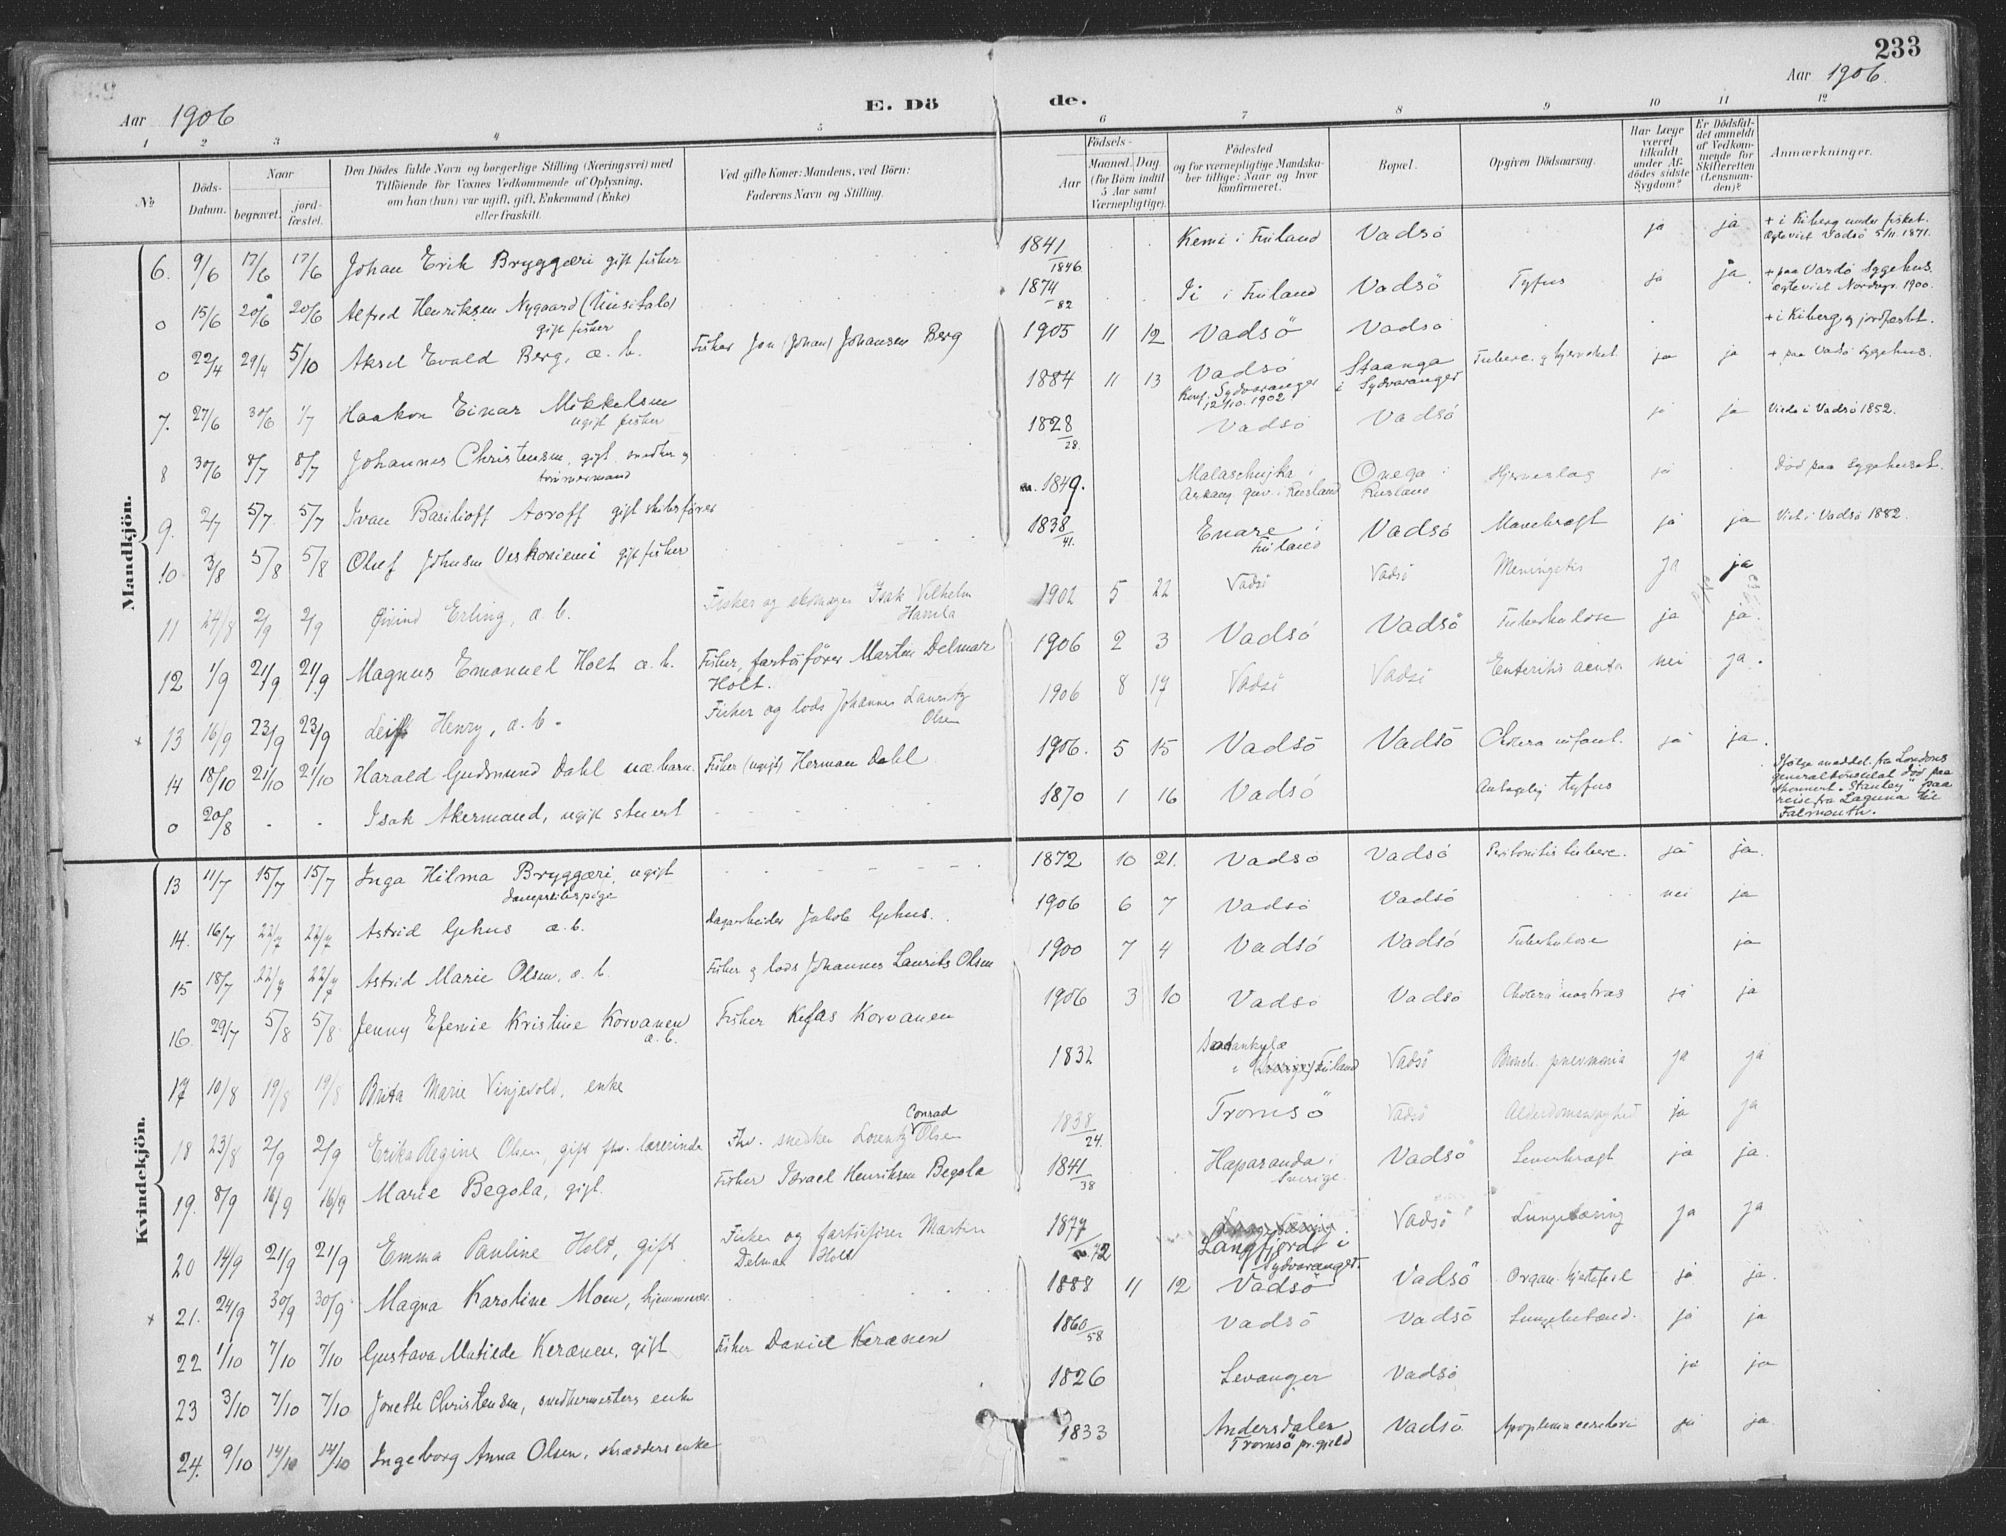 233
Aar 1906
E. Dö
de.
Aar 1906.
1 2 3 4 5 6 7 8 9 10 11 12
No
Döds-Datum.
Naar
begravet.
jord-fæstet.
Den Dödes fulde Navn og borgerlige Stilling (Næringsvei) med
Tilföiende for Voxnes Vedkommende af Oplysning,
om han (hun) var ugift, gift, Enkemand (Enke)
eller fraskilt.
Ved gifte Koner: Mandens, ved Börn:
Faderens Navn og Stilling.
Födsels-
Aar
Maaned. Dag.
(for Börn indtil
5 Aar samt
Værnepligtige).
Födested
og for værnepligtige Mandska-
ber tillige: Naar og hvor
konfirmeret.
Bopæl.
Opgiven Dödsaarsag.
Har Læge
været
tilkaldt
under Af-
dödes sidste
Sygdom?
Er Dödsfal-
det anmeldt
af Vedkom-
mende for
Skifteretten
(Lensman-
den)?
Anmærkninger.
Mandkjön.
6. 9/6 17/6 17/6 Johan Erik Bryggæri gift fisker 1841/1846 Kemi i Finland Vadsö ja ja + i Kiberg under fisket.
Ægteviet Vadsö 5/11 1871.
0 15/6 20/6 20/6 Alfred Henriksen Nygaard (Uusitalo)
gift fisker 1874/82 Ii i Finland Vadsö Tyfus ja ja + paa Vardö Sygehus.
Ægteviet Nordvgr. 1900.
0 22/4 29/4 5/10 Aksel Evald Berg, æ. b. Fisker Jon (Johan) Johansen Berg 1905 11 12 Vadsö Vadsö + i Kiberg, og jordfæstet.
7. 27/6 30/6 1/7 Haakon Einar Mikkelsen
ugift fisker 1884 11 13 Vadsö
Konf. Sydvaranger
12/10. 1902 Staanga
i Sydvaranger Tuberc. ja ja + paa Vadsö Sygehus.
8 30/6 8/7 8/7 Johannes Christensen, gift. snedker og
tömmermand 1828/28. Vadsö Vadsö ja ja Viede i Vadsö 1852.
9. 2/7 5/7 5/7 Ivan Basilioff Aoroff gift skibsförer 1849. Arkang. guv. i Rusland Onega i
Rusland Hjerneslag ja Död paa Sygehuset.
10 3/8 5/8 5/8 Oluf Johnsen Veskoniemi gift fisker 1838/41. Enare i
Finland Vadsö Mavekræft ja ja Viet i Vadsö 1882.
11 24/8 2/9 2/9 Eivind Erling, æ. b. Fisker og skomager Isak Vilhelm
Hamla 1902 5 22 Vadsö Vadsö Meningitis ja ja
12 1/9 21/9 21/9 Magnus Emanuel Holt æ. b. Fisker, fartöiförer Martin Delmar
Holt. 1906 2 3 Vadsö Vadsö Tuberkulose ja ja.
13 16/9 23/9 23/9 Leif Henry, æ. b. Fisker og lods Johannes Lauritz
Olsen 1906 8 17 Vadsö Vadsö Enteritis acuta nei ja.
14 18/10 21/10 21/10 Harald Gudmund Dahl uæ. barn Fisker (ugift) Herman Dahl 1906. 5 15 Vadsö Vadsö Cholera infant. ja ja.
0 20/8 - - Isak Akermand, ugift stuert 1870 1 16 Vadsö Antagelig tyfus Ifölge meddel. fra Londons
generalkonsulat död paa
skonnert "Stanley" paa
reise fra Laguna til
Falmouth.
Kvindekjön.
13 11/7 15/7 15/7 Inga Hilma Bryggæri, ugift 1872 10 21. Vadsö Vadsö Peritonitis tuberc. ja ja.
14. 16/7 22/7 22/7 Astrid Gehus æ. b. Dagarbeider Jakob Gehus. 1906 6 7 Vadsö Vadsö nei ja
15 18/7 22/7 22/7 Astrid Marie Olsen, æ. b. Fisker og lods Johannes Laurits Olsen 1900 7 4 Vadsö Vadsö Tuberkulose ja
16. 29/7 5/8 5/8 Jenny Efenie Kristine Korvanen
æ. b. Fisker Kefas Korvanen 1906 3 10 Vadsö Vadsö Cholera nostras ja ja
17 10/8 19/8 19/8 Brita Marie Vinjevold, enke 1832 Sodankylæ
i Finland Vadsö Bronch. pneumonia ja ja
18 23/8 2/9 2/9 Erika Regine Olsen, gift fhv. lærerinde Fhv. snedker Lorentz Conrad Olsen 1838/24. Tromsö Vadsö Alderdomssvaghed ja ja
19. 8/9 16/9 16/9 Marie Begola, gift. Fisker Israel Henriksen Begola 1841/38 Haparanda i
Sverige. Vadsö Leverkræft ja ja.
20 14/9 21/9 21/9 Emma Pauline Holt, gift Fisker og fartöiförer Martin
Delmar Holt 1877/72 Langfjord i
Sydvaranger. Vadsö Lungetæring ja ja
21. 24/9 30/9 30/9 Magna Karoline Moen, hjemmevær. 1888 11 12 Vadsö Vadsö Organ. hjertefeil ja ja.
22 1/10 7/10 7/10 Gustava Matilde Keränen, gift Fisker Daniel Keränen 1860/58 Vadsö Vadsö Lungebetænd. ja ja
23 3/10 7/10 7/10 Jonette Christensen, snedkermesters enke 1826 Levanger Vadsö ja ja
24. 9/10 14/10 14/10 Ingeborg Anna Olsen, skrædders enke 1833 Andersdalen
Tromsö pr.gjeld Vadsö Apoplexia cerebri ja ja.